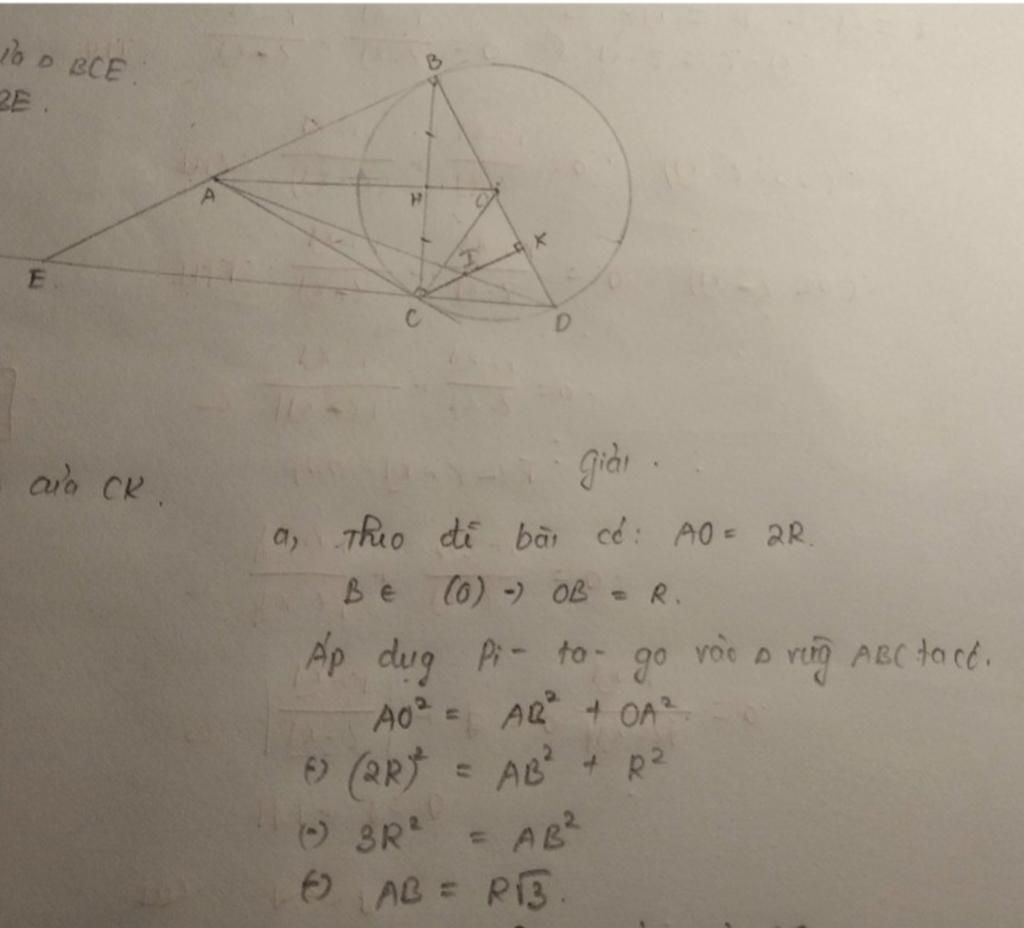 Δ BCE.
BE.
B
A
H
O
K
I
E
C
D
Giải.
của CK.
a, Theo đề bài có: AO = 2R.
B ∈ (O) -> OB = R.
Áp dụg Pi-ta-go vào Δ vuôg ABC ta có.
AO² = AB² + OA²
(=) (2R)² = AB² + R²
(=) 3R² = AB²
(=) AB = R√3.